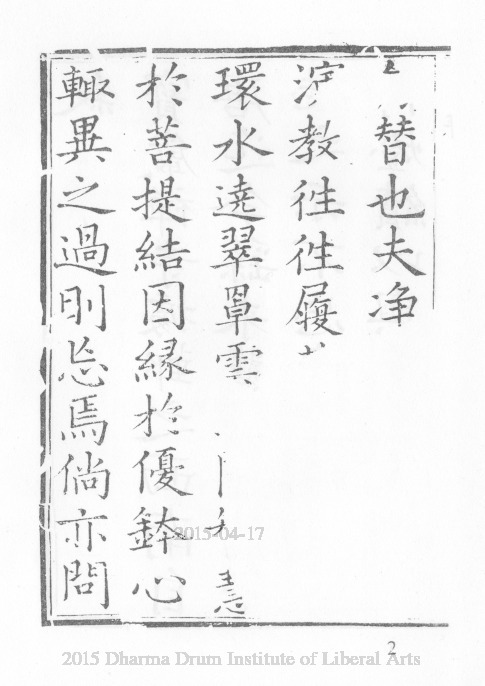 替也夫净
教徃徃履
環水遶翠罩雲
於菩提結因縁於優鉢心
輙異之過則忘焉倘亦問
2015-04-17
2
2015 Dharma Drum Institute of Liberal Arts